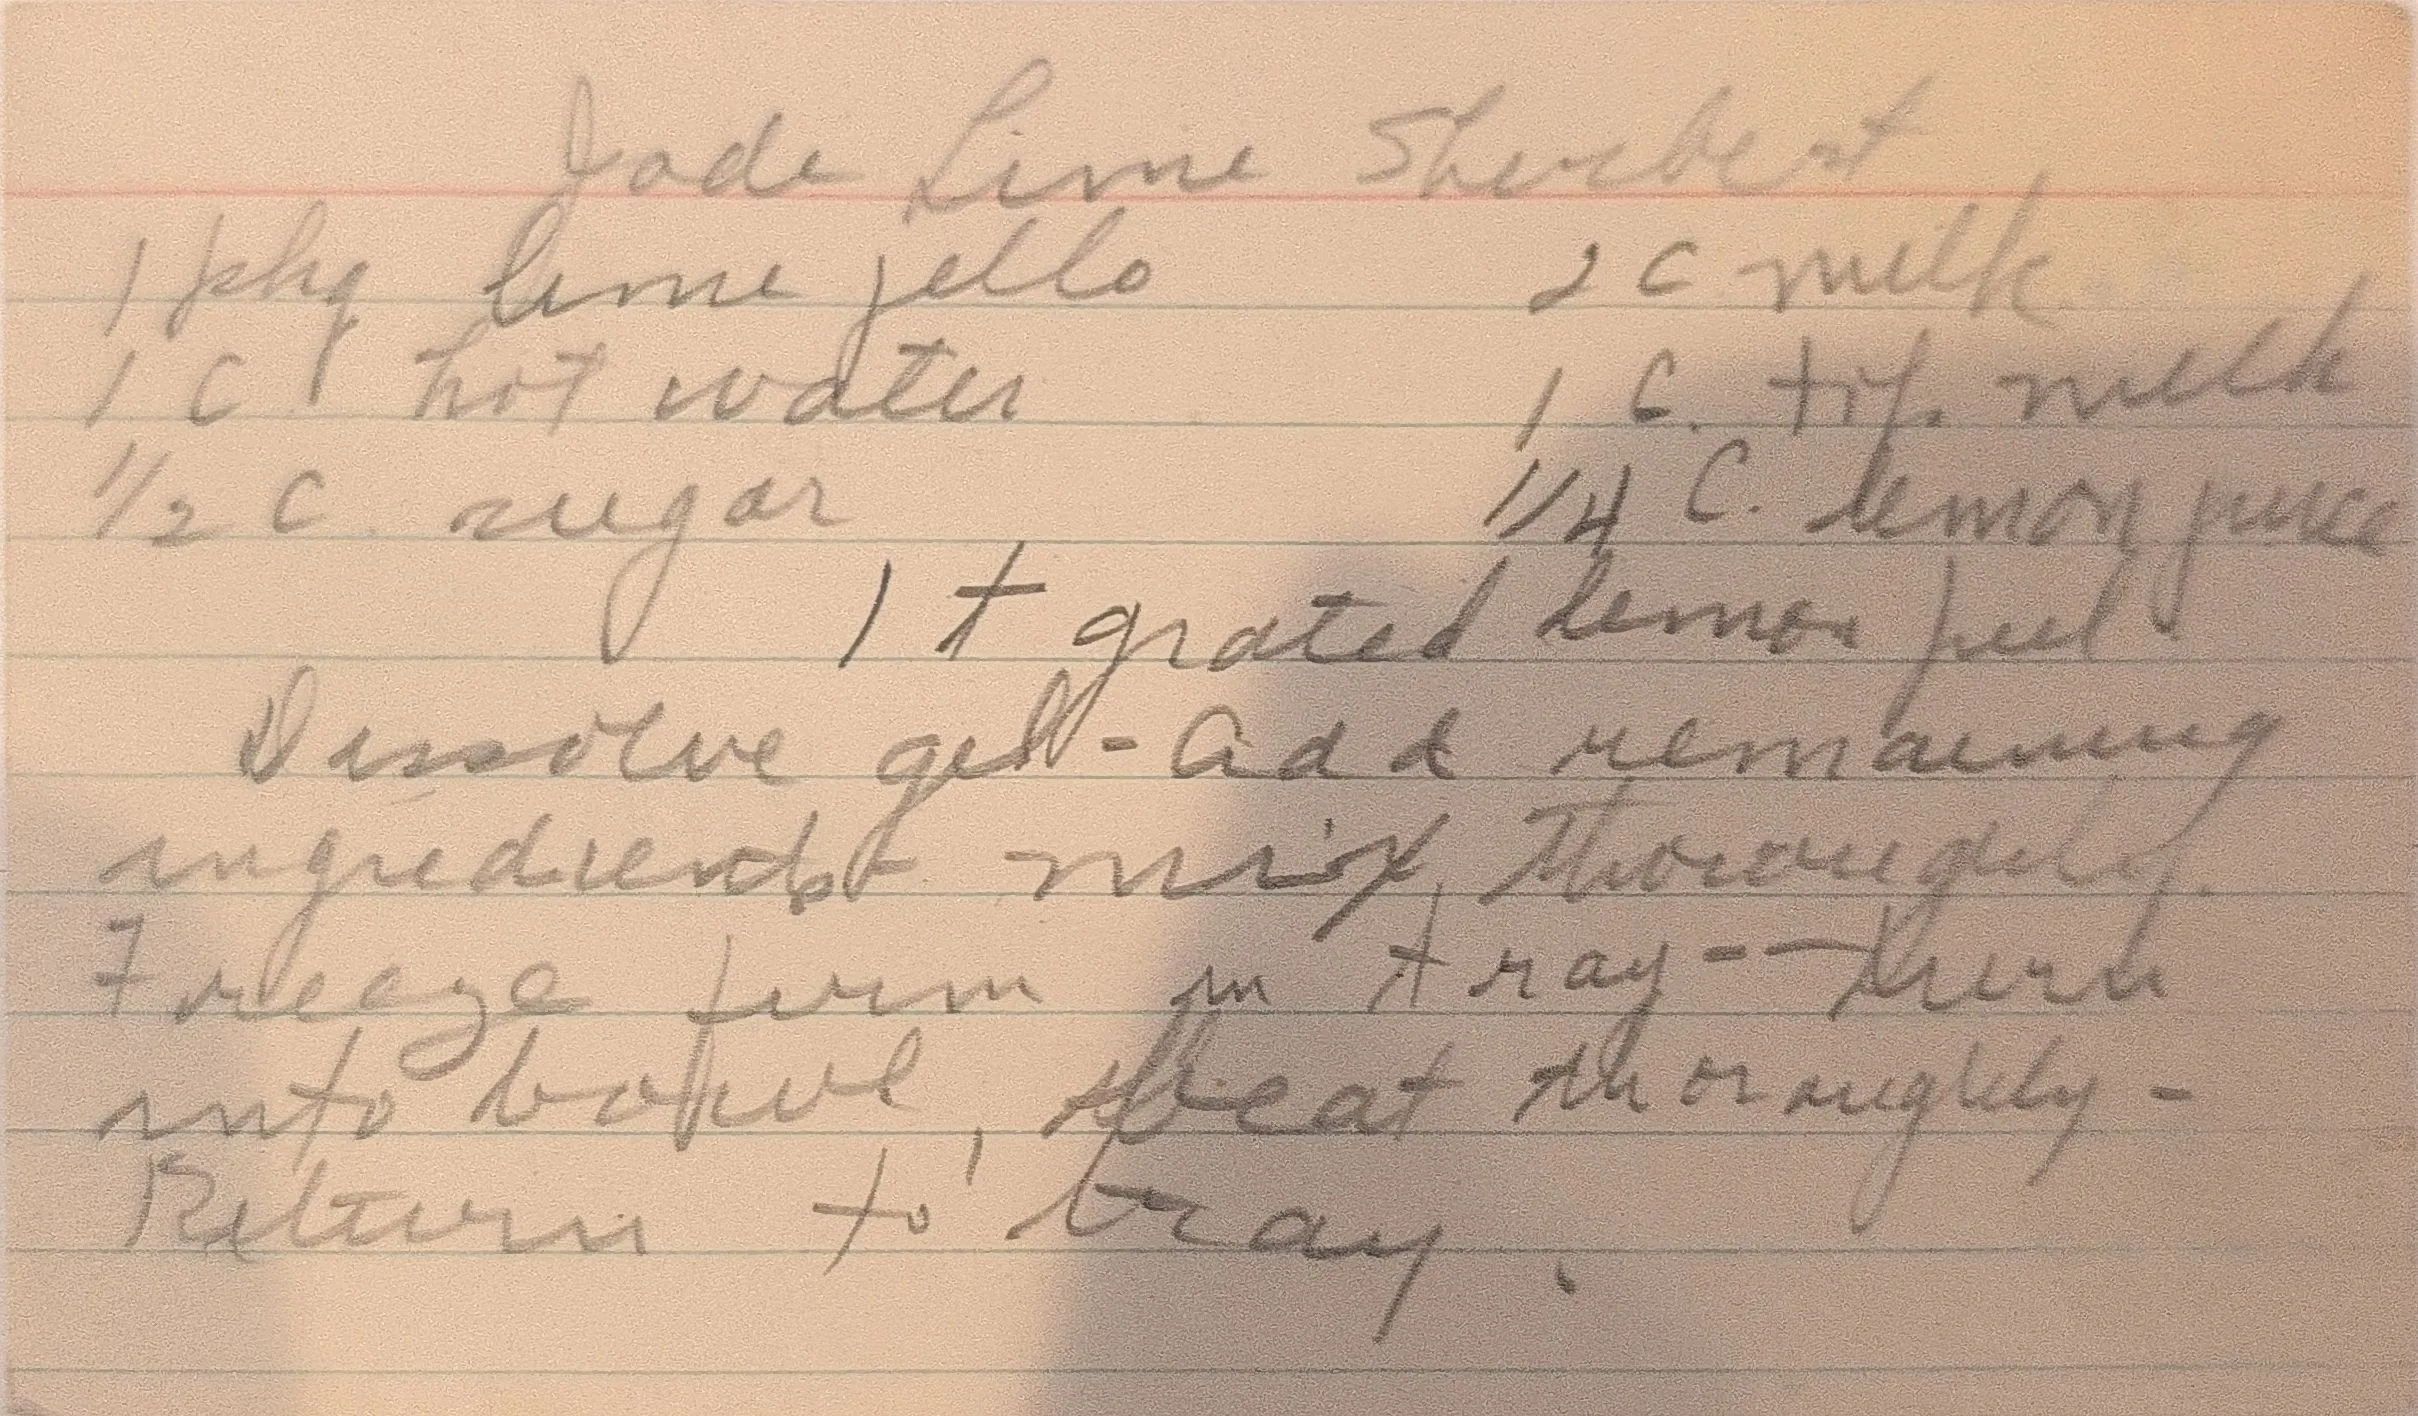 Jade Lime Sherbert
1 pkg lime jello 2 C milk
1 C hot water 1 C. milk
1/2 C. sugar 1/4 C. lemon juice
1 t grated lemon peel
Dissolve gel - Add remaining
ingredients mix, thoroughly.
Freeze firm in tray -- turn
into bowl, beat thoroughly -
Return to tray.